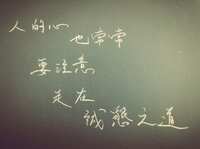 人的心
也常常
要注意
走在
誠懇之道